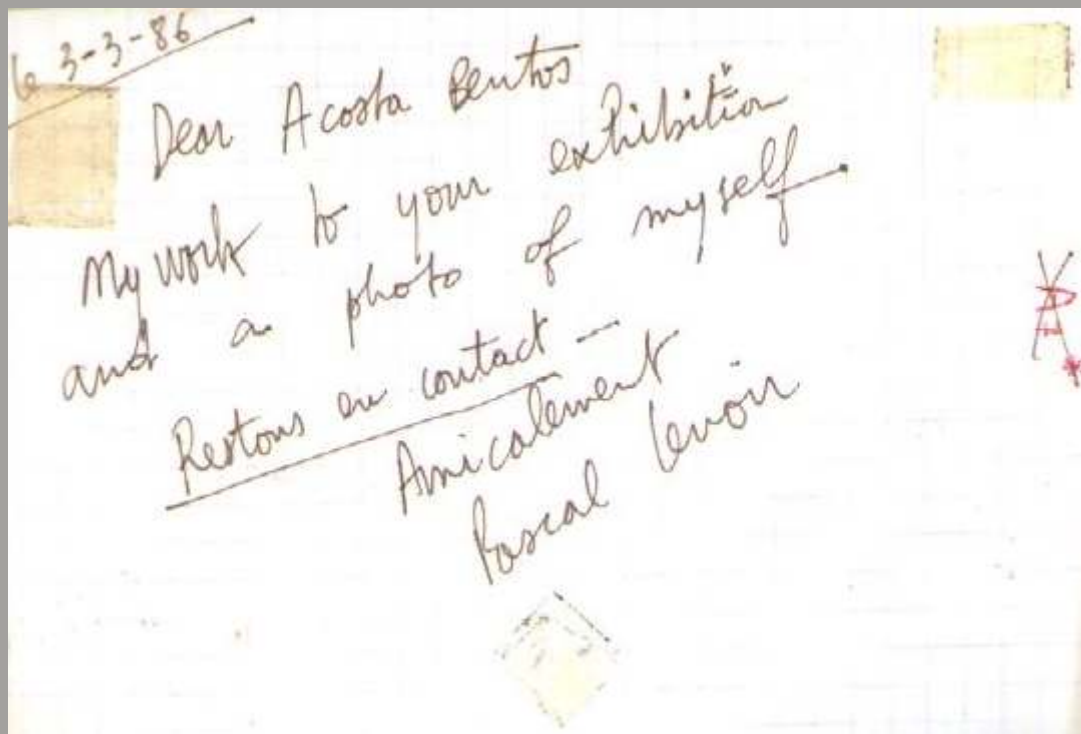 le 3-3-86
Dear Acosta Bentos
My work to your exhibition
and a photo of myself
Restons en contact -
Amicalement
Pascal Lenoir